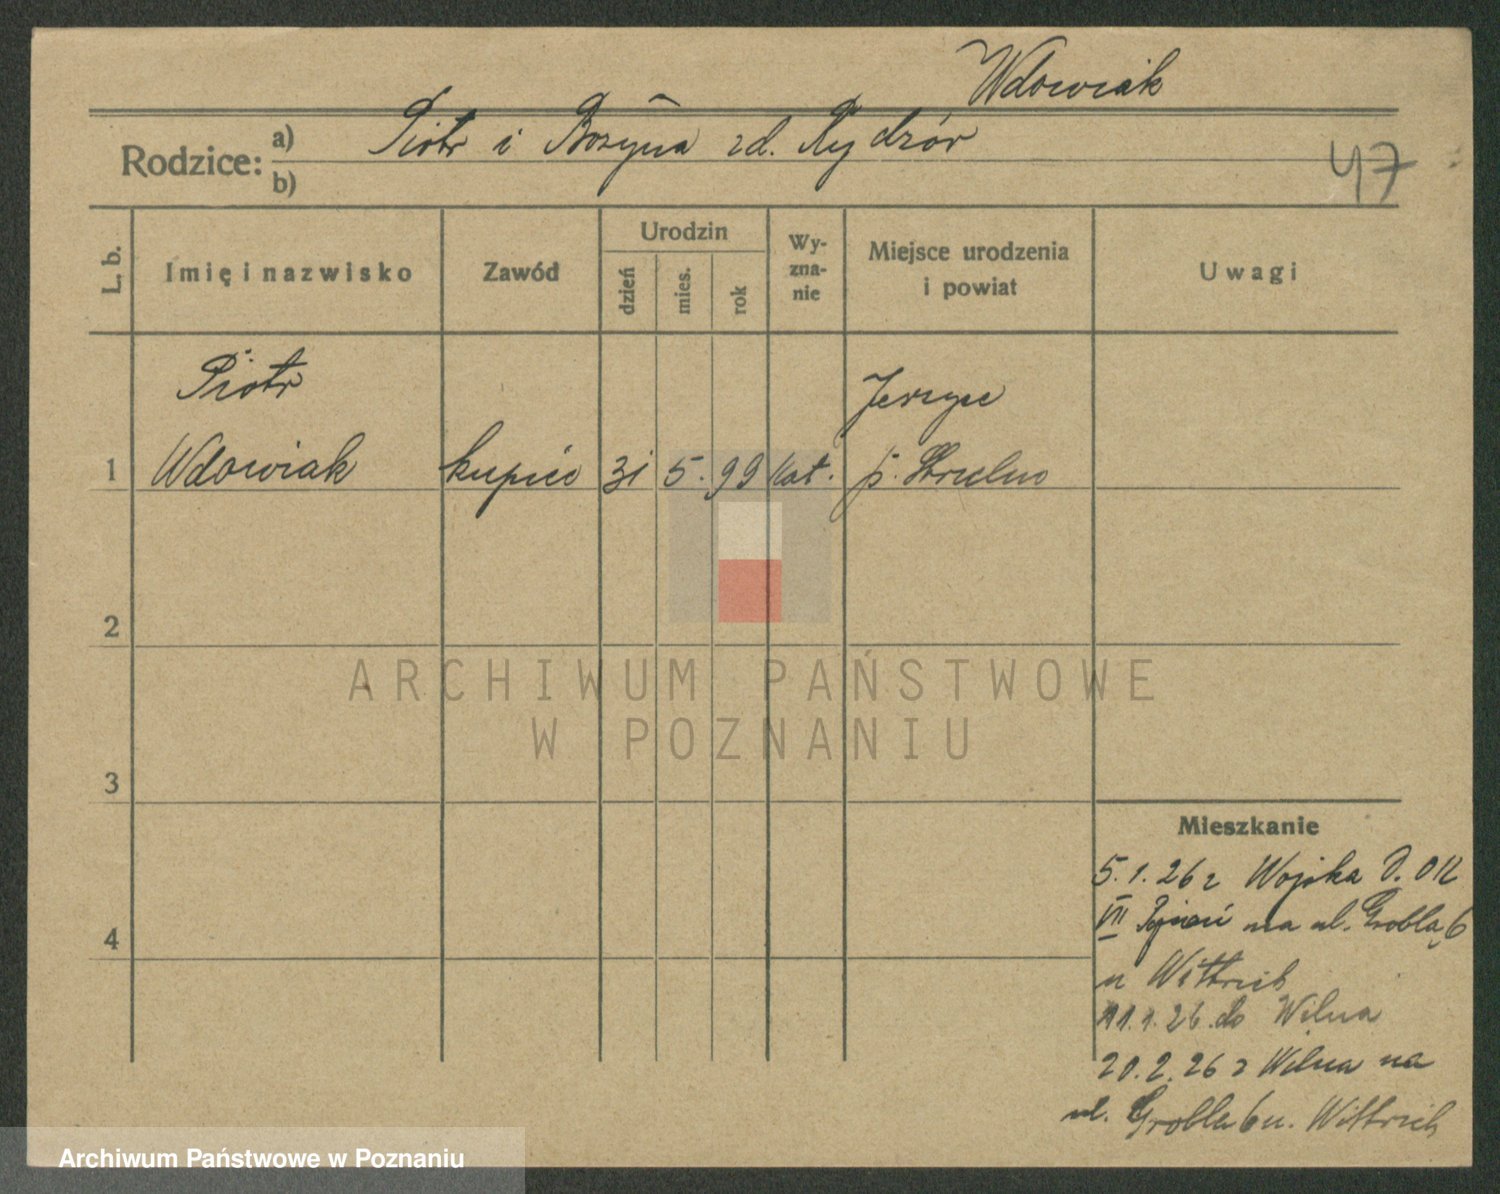 Wdowiak
Rodzice: a) Piotr i Bożyna zd. Rydzór
b)
47
L. b.
Imię i nazwisko
Zawód
Urodzin
dzień
mies.
rok
Wy-
zna-
nie
Miejsce urodzenia
i powiat
Uwagi
Piotr
Jerzyce
1 Wdowiak kupiec 31 5. 99 kat. p. Strzelno
2
3
4
ARCHIWUM PAŃSTWOWE
W POZNANIU
Mieszkanie
5.1.26 z Wojska D.OK
VII Poznań na ul. Grobla 6
u Wittrich
11.1.26. do Wilna
20.2.26 z Wilna na
ul. Grobla 6 u. Wittrich
Archiwum Państwowe w Poznaniu